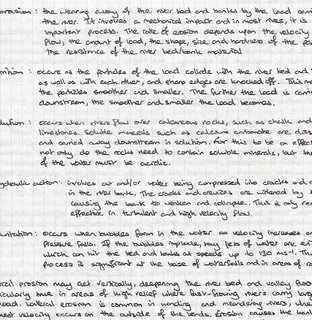 orrasion : the wearing away of the river bed and banks by the load carri
the river. It involves a mechanical impact and in most rivers, it is
important process. The rate of erosion depends upon the velocity
flow, the amount of load, the shape, size, and hardness of the
the resistance of the river bed/bank material
: occurs as the particles of the load collide with the river bed and
as well as with each other, and sharp edges are knocked off. This
the particles smoother and smaller. The further the load is carri
downstream, the smoother and smaller the load becomes.
: occurs when rivers flow over calcareous rocks, such as chalk and
limestones. Soluble minerals such as calcium carbonate are diss
and carried away downstream in solution. For this to be an effect
not only do the rocks need to contain soluble minerals, but
of the water must be acidic.
ydraulic action : involves air and/or water being compressed into cracks and
in the river bank. The cracks and crevices are widened by
causing the bank to weaken and collapse. This is only
effective in turbulent and high velocity flow.
avitation : occurs when bubbles form in the water as velocity increases
pressure falls. If the bubbles implode, tiny jets of water are
which can hit the bed and banks at speeds up to 130 ms⁻¹. This
process is significant at the base of waterfalls and in areas of
erosion may act vertically, deepening the river bed and valley floor
icularly true in areas of high relief where fast-flowing rivers carry
load. Lateral erosion is common in winding and meandering rivers
velocity occurs on the outside of the bends. Erosion causes the